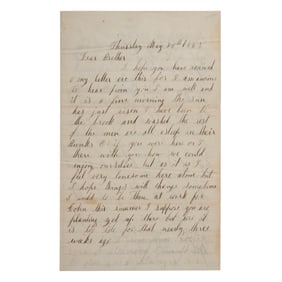 Thursday May 28th 186
Dear Brother
I hope you have received
my letter ere this for I am anxious
to hear from you I am well and
it is a fine morning the sun
has just risen I have been to
the brook and washed the rest
of the men are all asleep in their
Bunks O if you were here or I
there with you how we could
enjoy ourselves but as it is I
feel very lonesome here alone but
I hope things will change sometime
I would to be there at work for
John this summer I suppose you are
planting got up there but here it
is too late for that nearly three
weeks ago